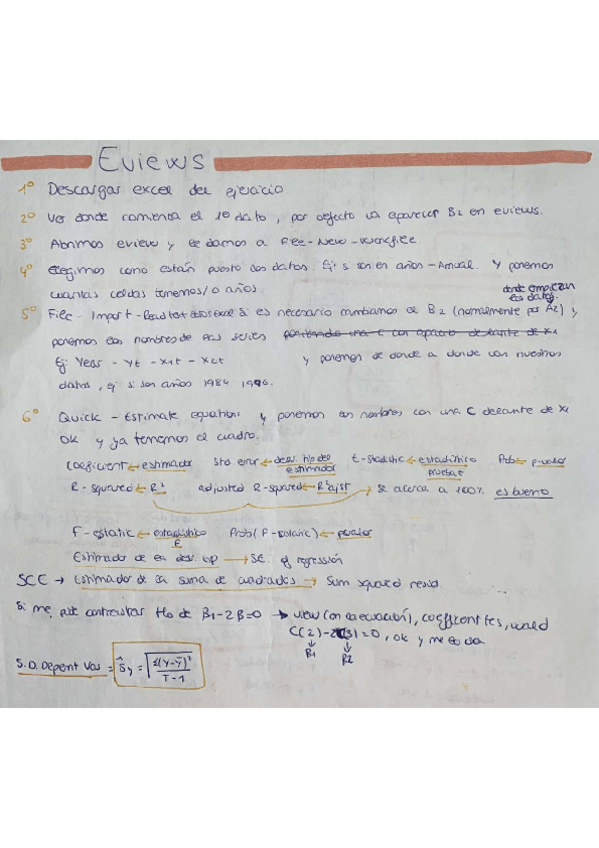 Eviews
1º Descargar excel del ejercicio
2º Ver donde comienza el 1º dato, por defecto va aparecer B2 en eviews.
3º Abrimos eview y le damos a File - New - Workfile
4º Elegimos como están puesto los datos. Ej: si son en años - Annual. Y ponemos
cuantas celdas tenemos/o años.
donde empiezan
los datos
5º File - Import - Read text excel si es necesario cambiamos el B2 (normalmente por A2) y
ponemos los nombres de las series
Ej Year - Yt - X1t - X2t y ponemos de donde a donde van nuestros
datos, ej si son años 1984 1996.
6º Quick - Estimate equation y ponemos los nombres con una C delante de X1
OK y ya tenemos el cuadro.
Coeficient ← estimador Std error ← desv. tip del estimador t-stadistic ← estadístico prueba t Prob ← p-valor
R-squared ← R² adjusted R-squared ← R² ajst → se acerca a 100% es bueno
F-estatic ← estadístico F Prob(F-static) ← pvalor
Estimador de la desv. tip → S.E. of regression
SCE → Estimador de la suma de cuadrados → Sum squared resid.
Si me pide contrastar Ho de B1-2B=0 → view (en la ecuación), coefficientes, wald
C(2)-2C(3)=0, OK y me lo da
B1 B2
S.D. Depent Var = Ŝy = √Σ(Y-Ȳ)²/T-1